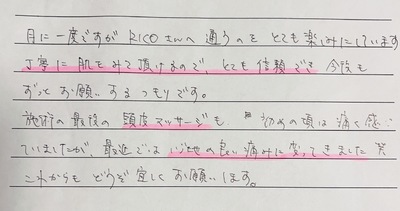 月に一度ですが RICOさんへ 通うのを とても楽しみにしています
丁寧に 肌をみて頂けるので、とても信頼でき 今後も
ずっと お願いするつもりです。
施術の最後の 頭皮マッサージも 初めの頃は 痛く感じ
ていましたが、最近では いい心地の良い痛みに変ってきました 笑
これからも どうぞ宜しくお願いします。